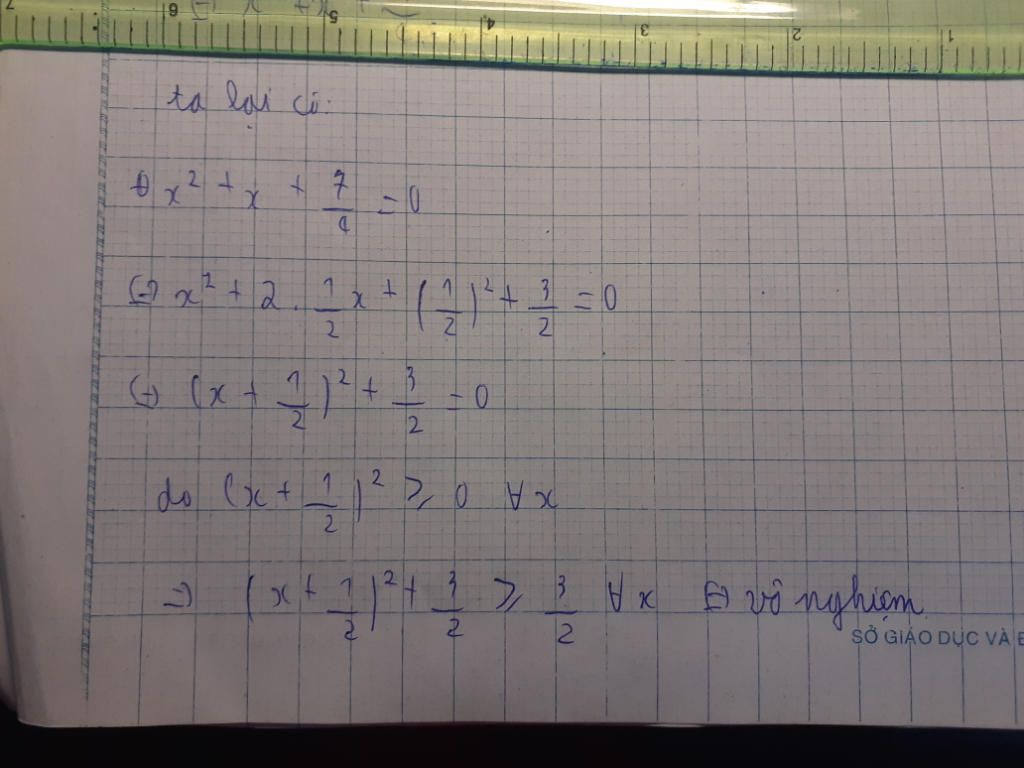 7 6 5 4 3 2 1
ta lại có:
+) x² + x + 7/4 = 0
(=) x² + 2 . 1/2 x + (1/2)² + 3/2 = 0
(=) (x + 1/2)² + 3/2 = 0
do (x + 1/2)² ≥ 0 ∀x
=) (x + 1/2)² + 3/2 ≥ 3/2 ∀x (=) vô nghiệm
SỞ GIÁO DỤC VÀ